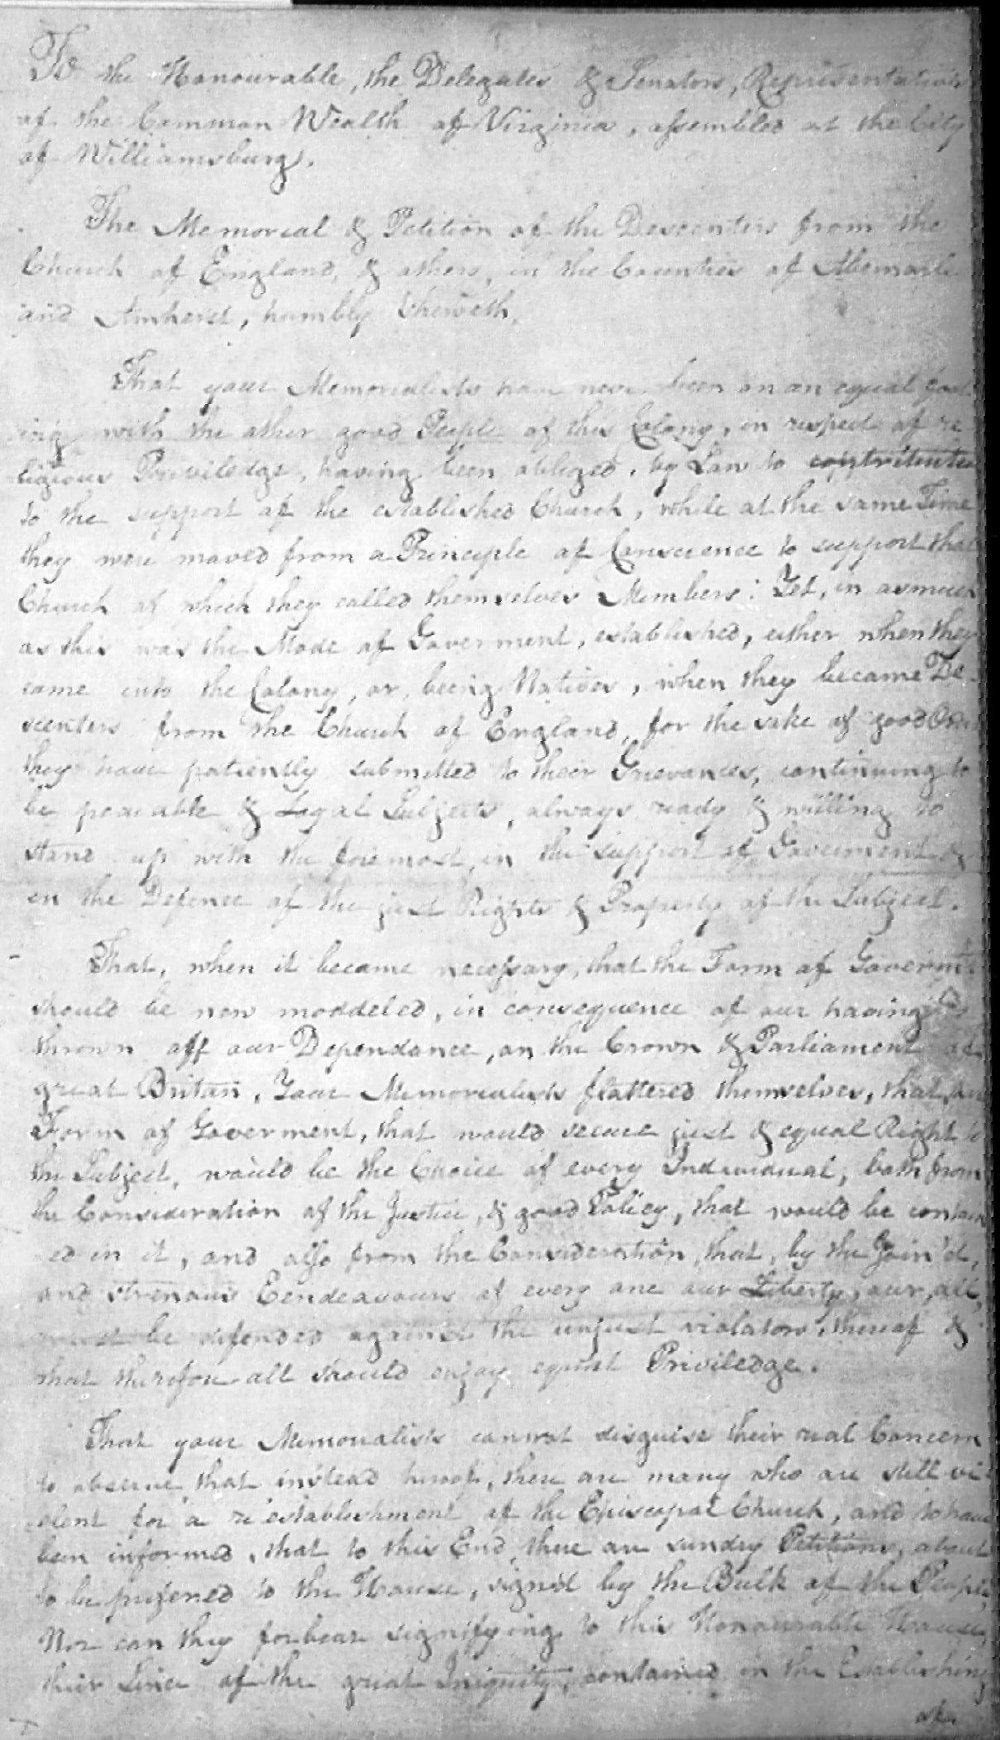 To the Honourable, the Delegates & Senators, Representatives
of the Common Wealth of Virginia, assembled at the City
of Williamsburg.
The Memorial & Petition of the Descenters from the
Church of England, & others, in the Counties of Albemarle
and Amherst, humbly Sheweth,
That your Memorialists have never been on an equal foot
ing with the other good People of this Colony, in respect of re
ligious Priviledge, having been obliged, by Law to contribute
to the support of the established Church, while at the same Time
they were moved from a Principle of Conscience to support that
Church of which they called themselves Members: Yet, in asmuch
as this was the Mode of Goverment, established, either when they
came into the Colony, or, being Natives, when they became De
scenters from the Church of England, for the sake of good Order
they have patiently submitted to their Grievances, continuing to
be peacable & Legal Subjects, always ready & willing to
stand up with the foremost, in the support of Goverment &
in the Defence of the just Rights & Property of the Subject.
That, when it became necessary, that the Form of Goverment
should be new moddeled, in consequence of our having
thrown off our Dependance, on the Crown & Parliament of
great Britan, Your Memorialists flattered themselves, that
Form of Goverment, that would secure just & equal Right to
the Subject, would be the Choice of every Individual, both from
the Consideration of the Justice, & good Policy, that would be contain
ed in it, and also from the Consideration, that, by the Join'd,
and strenous Eendeavours of every one our Liberty, our all,
must be defended against the unjust violators thereof &
that therefore all should enjoy equal Priviledge.
That your Memorialists cannot disguise their real Concern
to observe, that instead hereof, there are many who are still vi
olent for a re'establishment of the Episcopal Church, and to have
been informed, that to this End, there are sundry Petitions, about
to be prefered to the House, sign'd by the Bulk of the People,
Nor can they forbear signifying to this Honourable House,
their Sence of the great Iniquity, contained in the Establishing